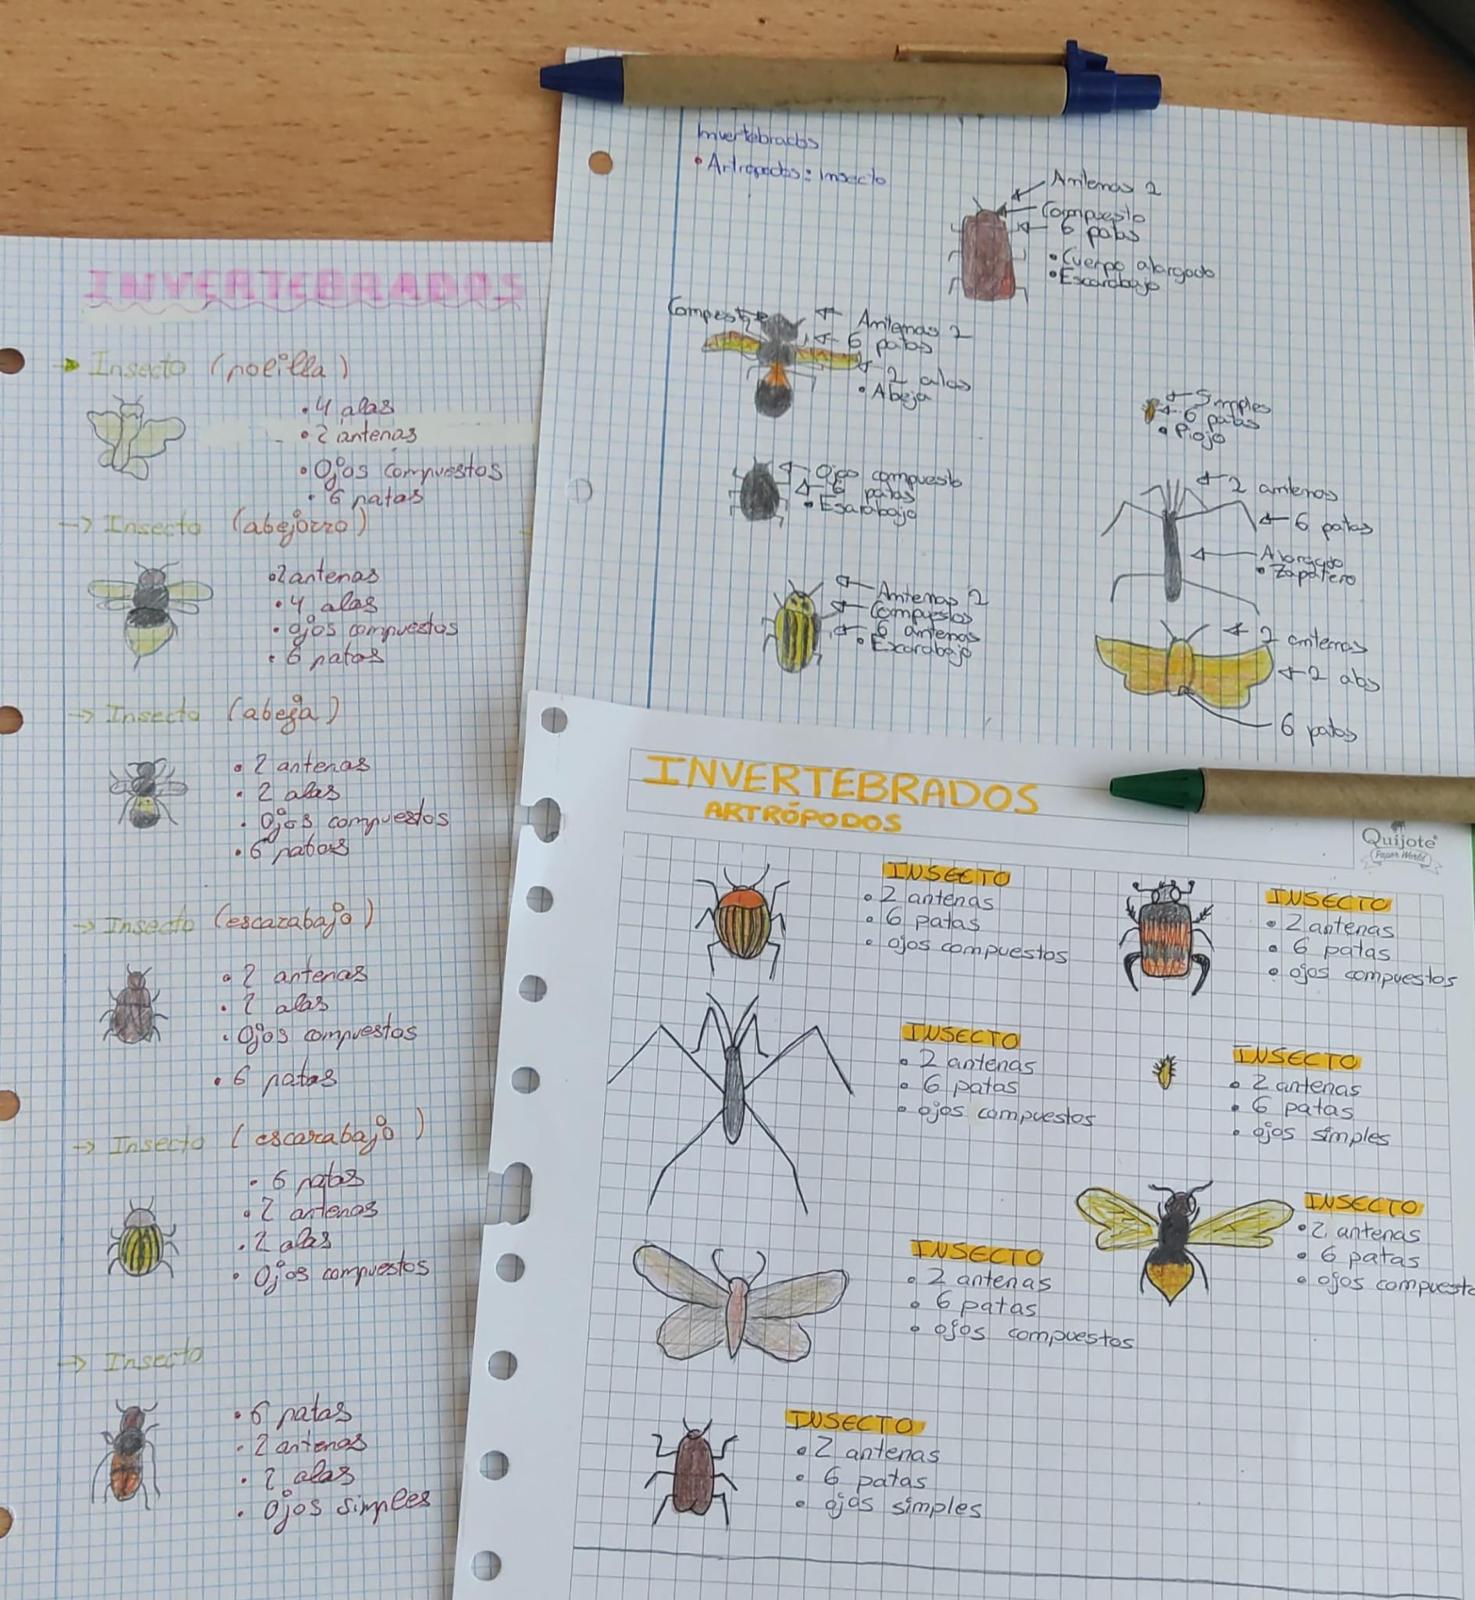 INVERTEBRADOS
Insecto (polilla)
• 4 alas
• 2 antenas
• Ojos compuestos
• 6 patas
→ Insecto (abejorro)
• 2 antenas
• 4 alas
• ojos compuestos
• 6 patas
→ Insecto (abeja)
• 2 antenas
• 2 alas
• Ojos compuestos
• 6 patas
→ Insecto (escarabajo)
• 2 antenas
• 2 alas
• Ojos compuestos
• 6 patas
→ Insecto (escarabajo)
• 6 patas
• 2 antenas
• 2 alas
• Ojos compuestos
→ Insecto
• 6 patas
• 2 antenas
• 2 alas
• Ojos simples
Invertebrados
• Artropodos: Insecto
Antenas 2
Compuesto
6 patas
• Cuerpo alargado
• Escarabajo
Antenas 2
6 patas
2 alas
• Abeja
Simples
6 patas
• Piojo
Ojo compuesto
6 patas
• Esarabajo
2 antenas
6 patas
Alargado
• Zapatero
Antenas 2
Compuestos
6 antenas
• Escarabajo
2 antenas
2 alas
6 patas
INVERTEBRADOS
ARTRÓPODOS
Quijote
Paper World
INSECTO
• 2 antenas
• 6 patas
• ojos compuestos
INSECTO
• 2 antenas
• 6 patas
• ojos compuestos
INSECTO
• 2 antenas
• 6 patas
• ojos compuestos
INSECTO
• 2 antenas
• 6 patas
• ojos simples
INSECTO
• 2 antenas
• 6 patas
• ojos compuesto
INSECTO
• 2 antenas
• 6 patas
• ojos compuestos
INSECTO
• 2 antenas
• 6 patas
• ojos simples